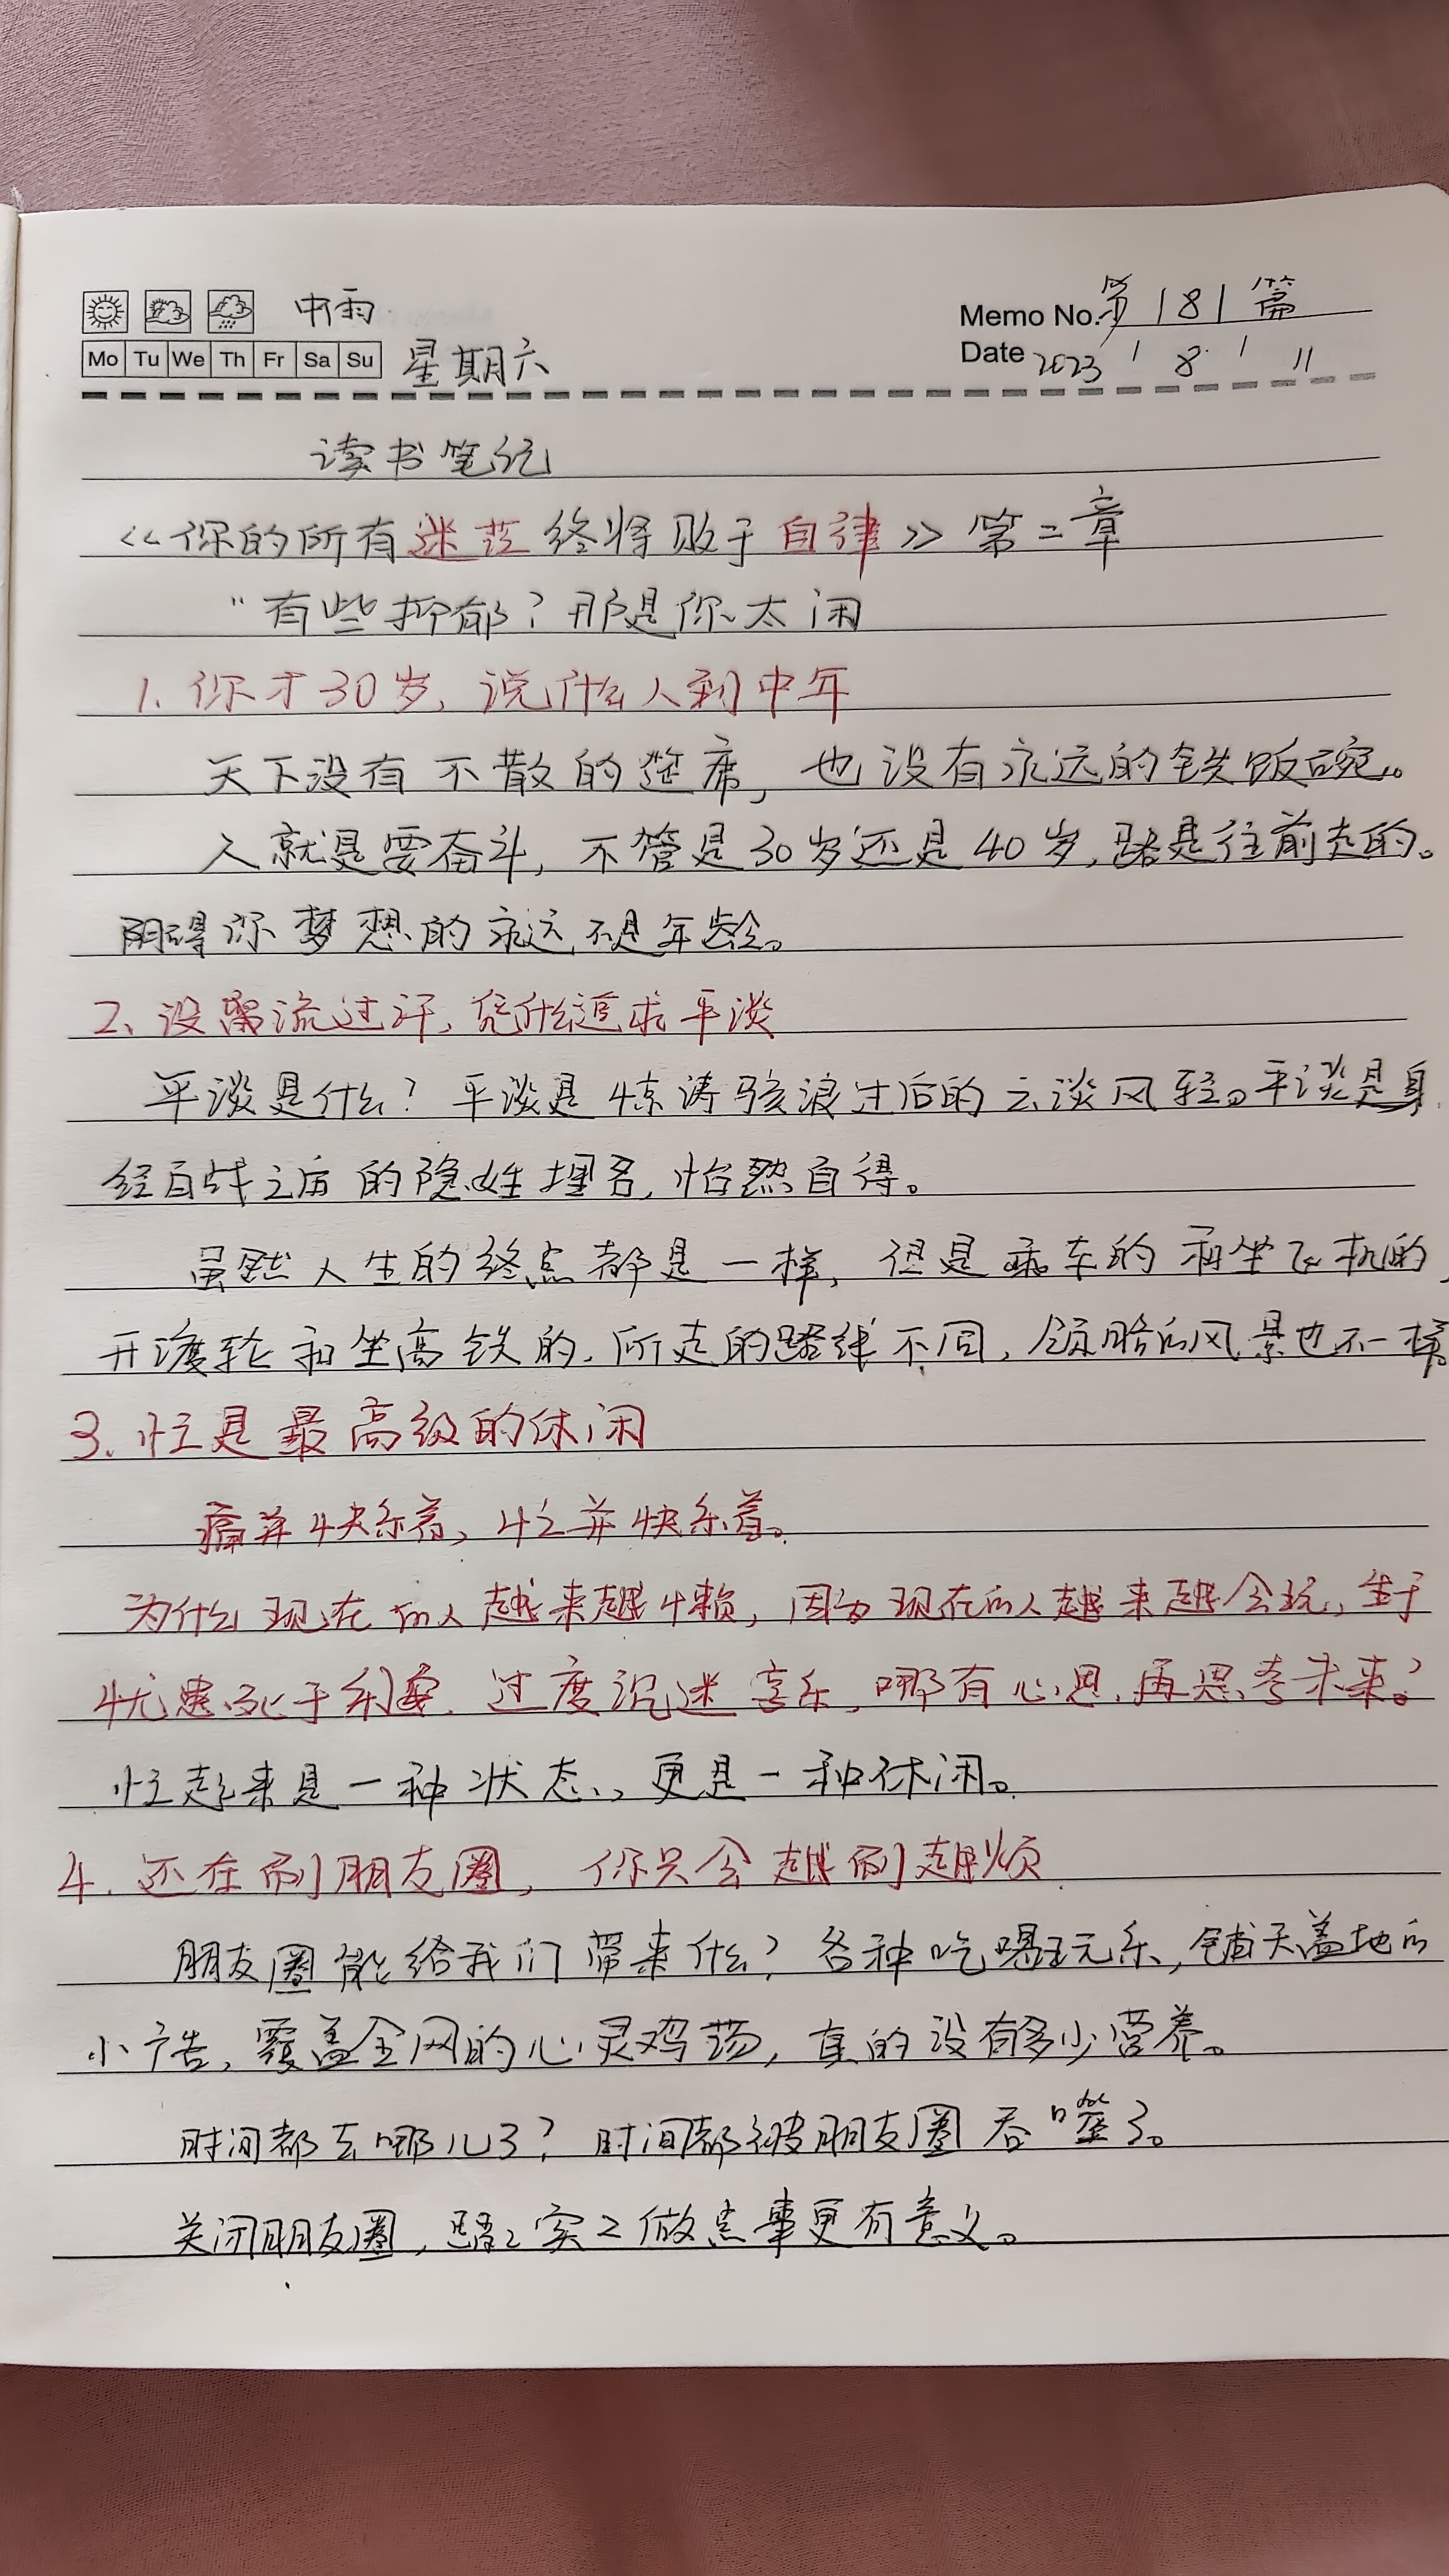 中雨 Memo No. 第181篇
Mo Tu We Th Fr Sa Su 星期六 Date 2023 / 8 / 11
读书笔记
《你的所有迷茫终将败于自律》第二章
“有些抑郁？那是你太闲
1、你才30岁，说什么人到中年
天下没有不散的筵席，也没有永远的铁饭碗。
人就是要奋斗，不管是30岁还是40岁，路是往前走的。
阴碍你梦想的永远不是年龄。
2、没留流过汗，凭什么追求平淡
平淡是什么？平淡是惊涛骇浪过后的云淡风轻。平淡是身
经百战之后的隐姓埋名，怡然自得。
虽然人生的终点都是一样，但是乘车的和坐飞机的，
开渡轮和坐高铁的，所走的路线不同，领略的风景也不一样
3、忙是最高级的休闲
痛并快乐着，忙并快乐着。
为什么现在的人越来越懒，因为现在的人越来越会玩，生于
忧患死于利安，过度沉迷享乐，哪有心思，再思考未来？
忙起来是一种状态，更是一种休闲。
4、还在刷朋友圈，你只会越刷越烦
朋友圈能给我们带来什么？各种吃喝玩乐，铺天盖地的
小广告，覆盖全网的心灵鸡汤，真的没有多少营养。
时间都去哪儿了？时间都被朋友圈吞噬了。
关闭朋友圈，踏踏实实做点事更有意义。